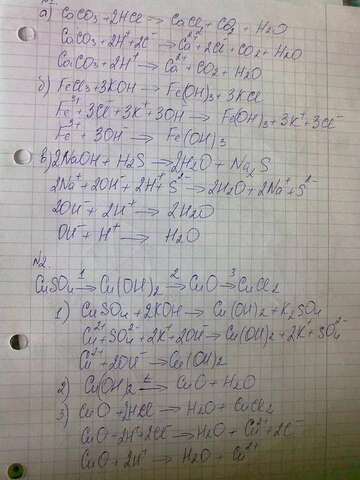 а) CaCO₃+2HCl → CaCl₂+CO₂+H₂O
CaCO₃+2H⁺+2Cl⁻ → Ca²⁺+2Cl⁻+CO₂+H₂O
CaCO₃+2H⁺ → Ca²⁺+CO₂+H₂O
б) FeCl₃+3KOH → Fe(OH)₃+3KCl
Fe³⁺+3Cl⁻+3K⁺+3OH⁻ → Fe(OH)₃+3K⁺+3Cl⁻
Fe³⁺+3OH⁻ → Fe(OH)₃
в) 2NaOH+H₂S → 2H₂O+Na₂S
2Na⁺+2OH⁻+2H⁺+S²⁻ → 2H₂O+2Na⁺+S²⁻
2OH⁻+2H⁺ → 2H₂O
OH⁻+H⁺ → H₂O
№2.
CuSO₄ 1→ Cu(OH)₂ 2→ CuO 3→ CuCl₂
1) CuSO₄+2KOH → Cu(OH)₂+K₂SO₄
Cu²⁺+SO₄²⁻+2K⁺+2OH⁻ → Cu(OH)₂+2K⁺+SO₄²⁻
Cu²⁺+2OH⁻ → Cu(OH)₂
2) Cu(OH)₂ t→ CuO+H₂O
3) CuO+2HCl → H₂O+CuCl₂
CuO+2H⁺+2Cl⁻ → H₂O+Cu²⁺+2Cl⁻
CuO+2H⁺ → H₂O+Cu²⁺